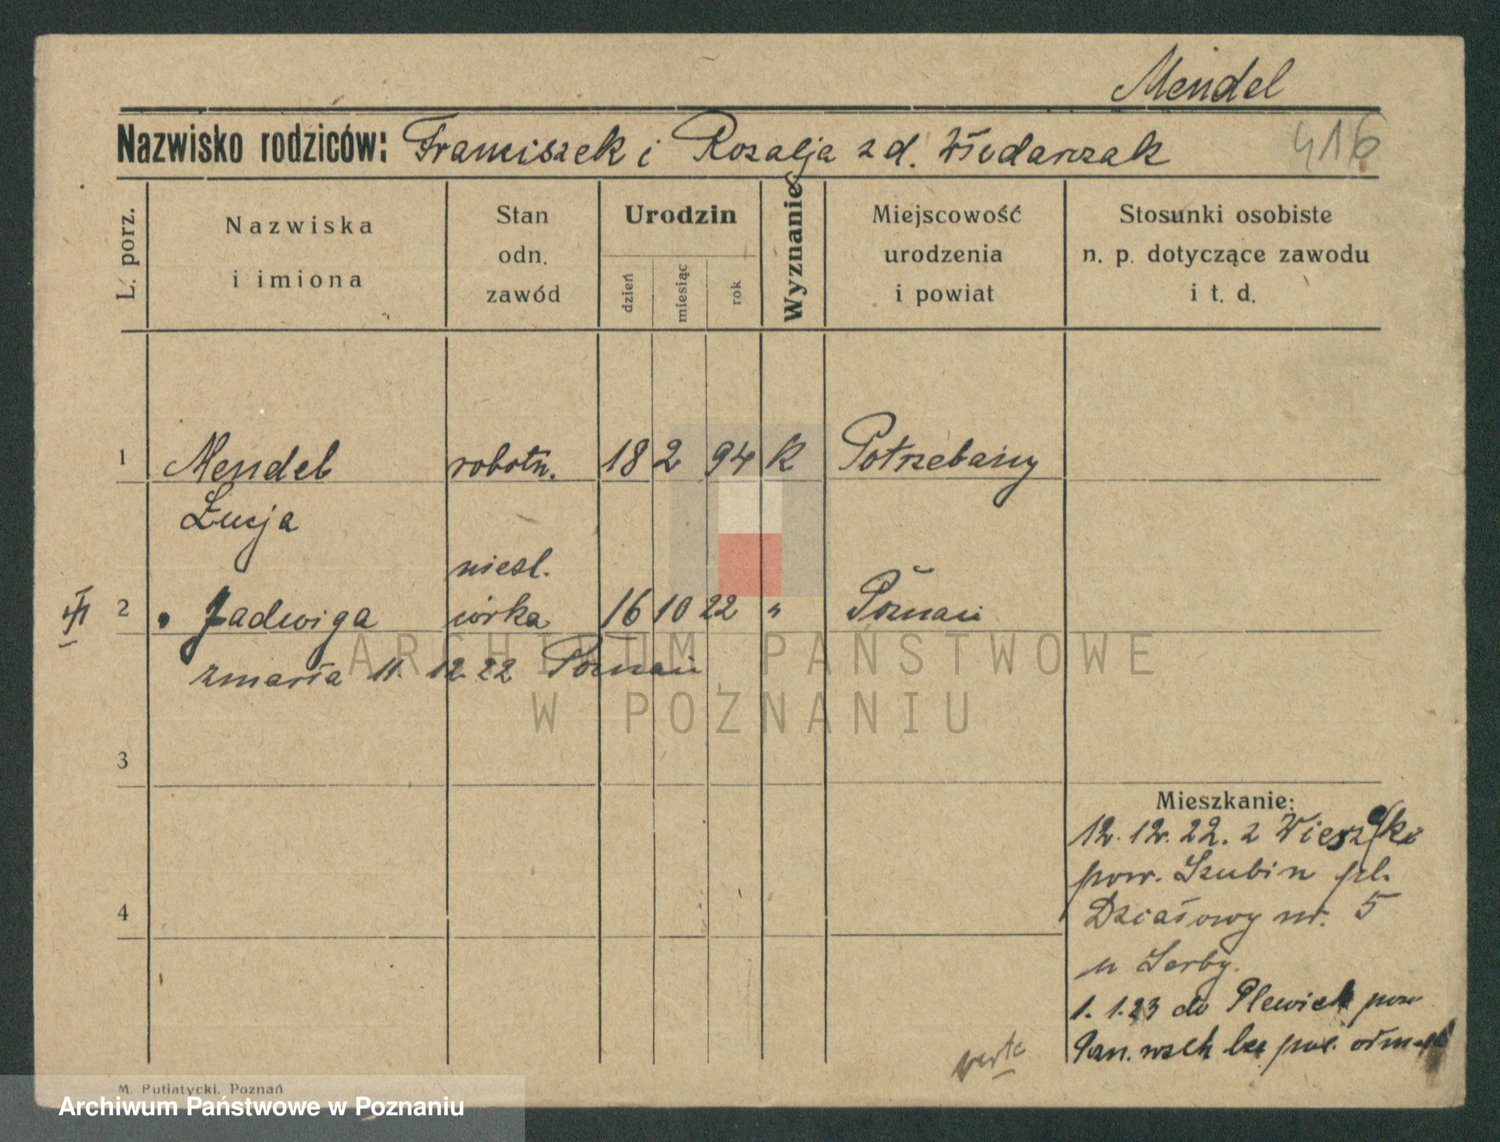 Mendel
416
Nazwisko rodziców: Franciszek i Rozalja z d. Włodarczak
L. porz.
Nazwiska
i imiona
Stan
odn.
zawód
Urodzin
dzień
miesiąc
rok
Wyznanie
Miejscowość
urodzenia
i powiat
Stosunki osobiste
n. p. dotyczące zawodu
i t. d.
1 Mendel robotn. 18 2 94 K
Łucja
niesl.
2 Jadwiga córka 16 10 22 " Poznań
zmarła 11. 12 22 Poznań
3
4
Mieszkanie:
12. 12. 22. z
pow. Szubin pl.
Działowy nr. 5
u
1. 1. 23 do
M. Putiatycki, Poznań
ARCHIWUM PAŃSTWOWE
W POZNANIU
Archiwum Państwowe w Poznaniu